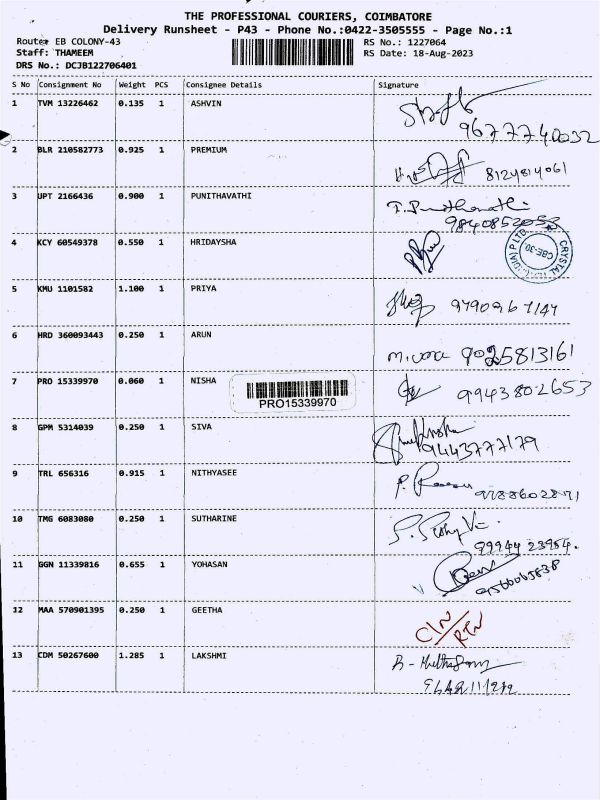 THE PROFESSIONAL COURIERS, COIMBATORE
Delivery Runsheet - P43 - Phone No.:0422-3505555 - Page No.:1
Route: EB COLONY-43 RS No.: 1227064
Staff: THAMEEM RS Date: 18-Aug-2023
DRS No.: DCJB122706401
S No Consignment No Weight PCS Consignee Details Signature
1 TVM 13226462 0.135 1 ASHVIN
9677740032
2 BLR 210582773 0.925 1 PREMIUM
8124814061
3 UPT 2166436 0.900 1 PUNITHAVATHI
9840852053
4 KCY 60549378 0.550 1 HRIDAYSHA
CRYSTAL P LTD CBE-30
5 KMU 1101582 1.100 1 PRIYA
9790967147
6 HRD 360093443 0.250 1 ARUN
9025813161
7 PRO 15339970 0.060 1 NISHA
9943802653
PRO15339970
8 GPM 5314039 0.250 1 SIVA
9443777179
9 TRL 656316 0.915 1 NITHYASEE
10 TMG 6083080 0.250 1 SUTHARINE
99944 23954.
11 GGN 11339816 0.655 1 YOHASAN
12 MAA 570901395 0.250 1 GEETHA
C/N/RTN
13 CDM 50267600 1.285 1 LAKSHMI